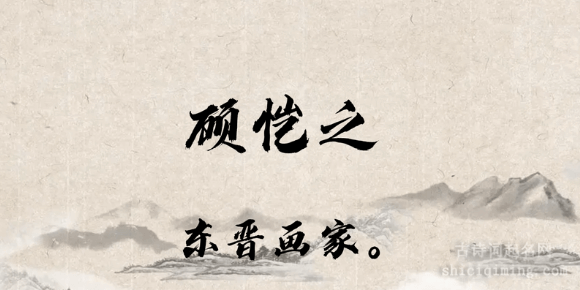 硕恺之
东晋画家。
古诗词起名网
shiciqiming.com